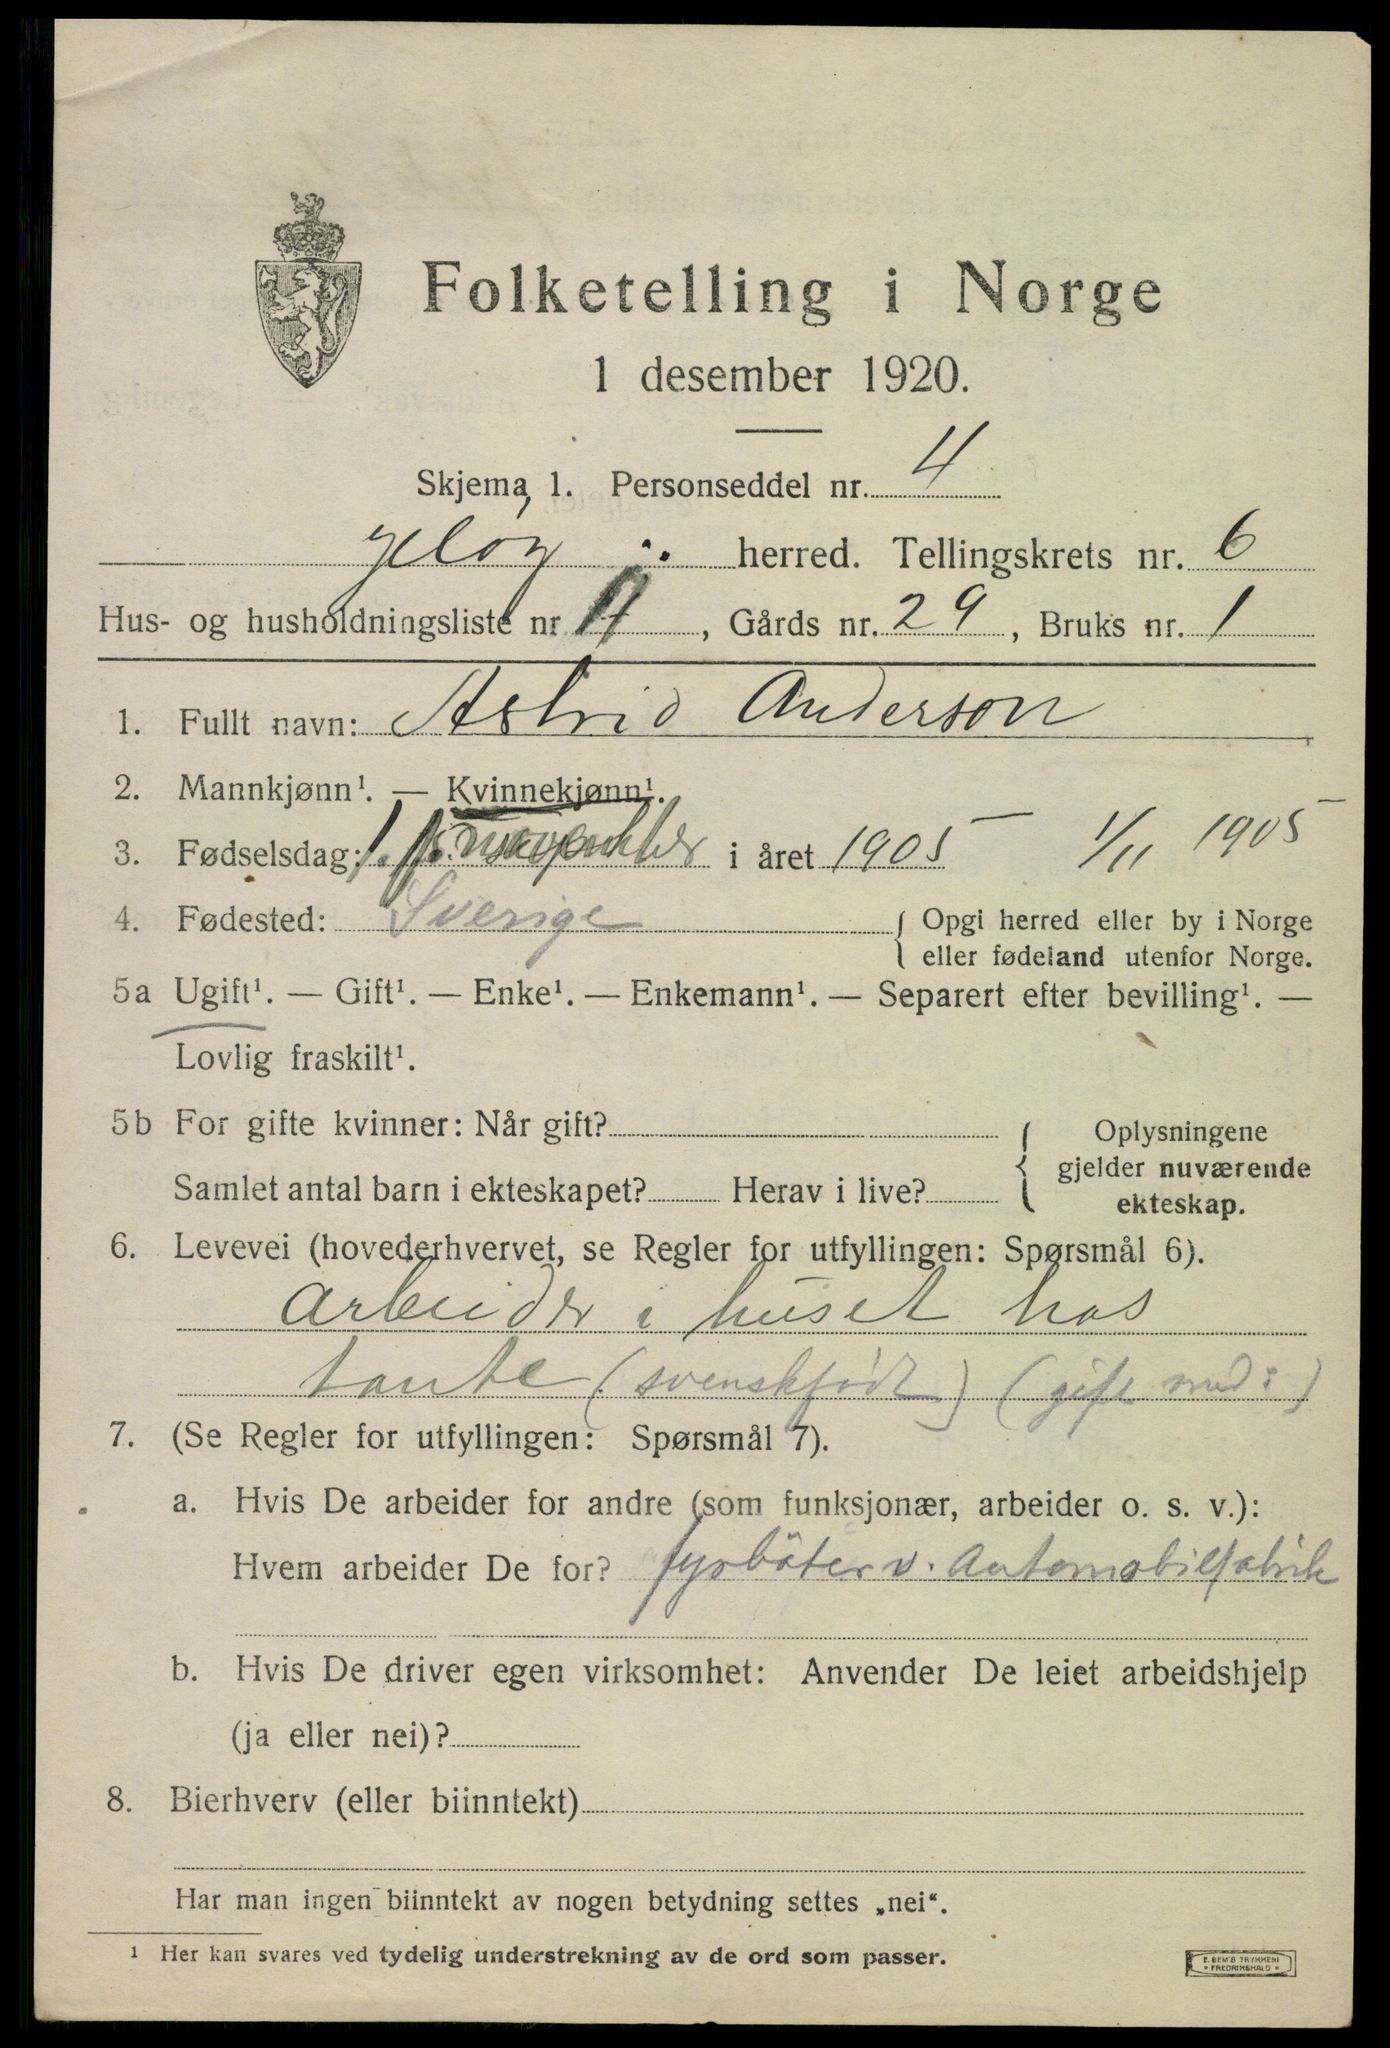 Folketelling i Norge
1 desember 1920.
Skjema 1. Personseddel nr. 4
Jeløy herred. Tellingskrets nr. 6
Hus- og husholdningsliste nr , Gårds nr. 29, Bruks nr. 1
1. Fullt navn: Astrid Anderson
2. Mannkjønn¹. — Kvinnekjønn¹.
3. Fødselsdag: 1. november i året 1905 1/11 1905
4. Fødested: Sverige { Opgi herred eller by i Norge
eller fødeland utenfor Norge.
5a Ugift¹. — Gift¹. — Enke¹. — Enkemann¹. — Separert efter bevilling¹. —
Lovlig fraskilt¹.
5b For gifte kvinner: Når gift?
Samlet antal barn i ekteskapet? Herav i live?
{ Oplysningene
gjelder nuværende
ekteskap.
6. Levevei (hovederhvervet, se Regler for utfyllingen: Spørsmål 6).
Arbeider i huset hos
tante (svenskfödt) (gift med:)
7. (Se Regler for utfyllingen: Spørsmål 7).
a. Hvis De arbeider for andre (som funksjonær, arbeider o. s. v.):
Hvem arbeider De for? fyrböter v. Automobilfabrik
b. Hvis De driver egen virksomhet: Anvender De leiet arbeidshjelp
(ja eller nei)?
8. Bierhverv (eller biinntekt)
Har man ingen biinntekt av nogen betydning settes „nei“.
¹ Her kan svares ved tydelig understrekning av de ord som passer.
E. SEM'S TRYKKERI
* FREDRIKSHALD *